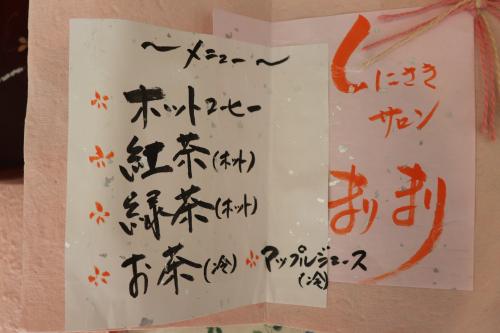 〜メニュー〜
ホットコーヒー
紅茶(ホット)
緑茶(ホット)
お茶(冷)
アップルジュース
(冷)
にさき
サロン
まりまり